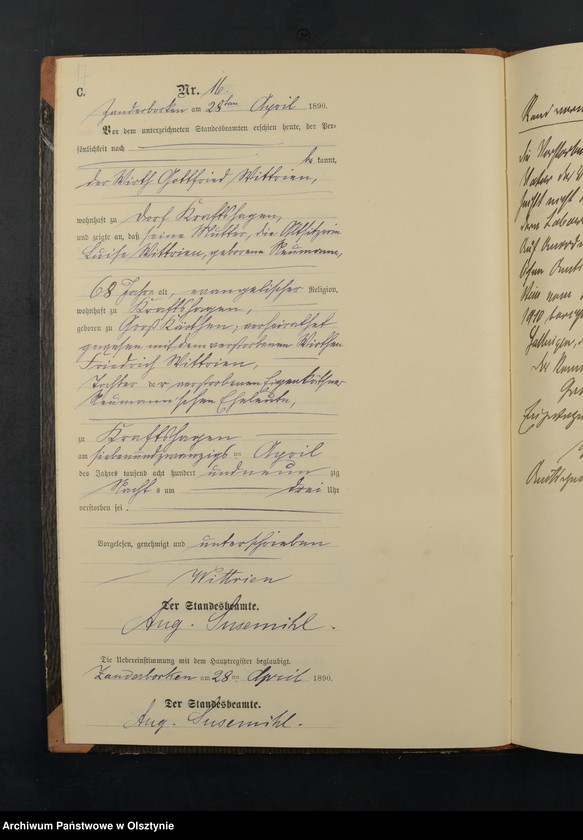 C.
Nr. 16.
Zanderborken am 28ten April 1890.
Vor dem unterzeichneten Standesbeamten erschien heute, der Per-
sönlichkeit nach
be kannt,
der Wirth Gottfried Wittrien,
wohnhaft zu Dorf Kraftshagen,
und zeigte an, daß seine Mutter, die Altsitzerin
Luise Wittrien, geborene Neumann,
68 Jahre alt, evangelischer Religion,
wohnhaft zu Kraftshagen,
geboren zu Groß Kärthen, verheirathet
gewesen mit dem verstorbenen Wirthen
Friedrich Wittrien,
Tochter der verstorbenen Eigenkäthner
Neumann'schen Eheleute,
zu Kraftshagen
am siebenundzwanzigsten April
des Jahres tausend acht hundert undneun zig
Nachts um drei Uhr
verstorben sei.
Vorgelesen, genehmigt und unterschrieben
Wittrien
Der Standesbeamte.
Aug. Susemihl.
Die Uebereinstimmung mit dem Hauptregister beglaubigt.
Zanderborken am 28ten April 1890.
Der Standesbeamte.
Aug. Susemihl.
Archiwum Państwowe w Olsztynie